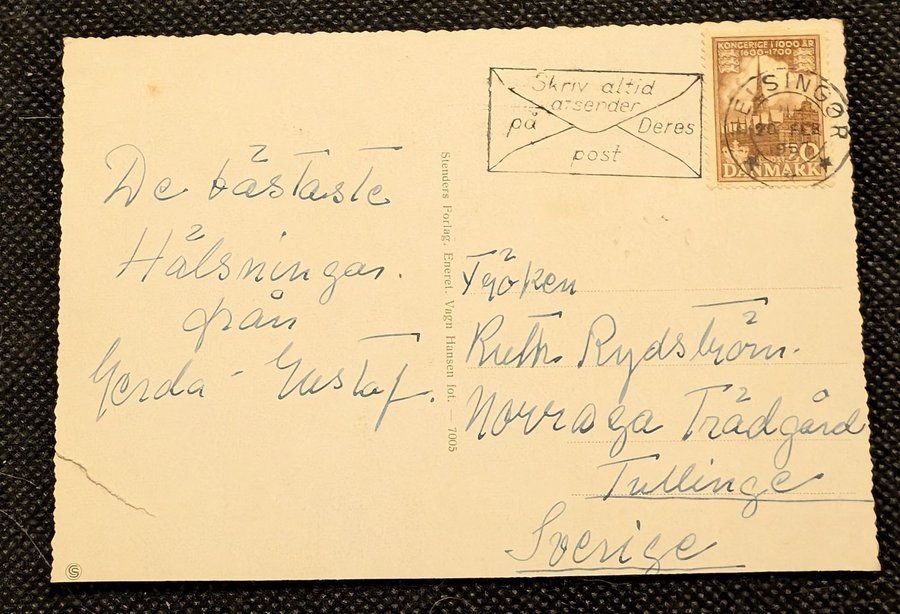 De bästaste
Hälsningar.
från
Gerda - Gustaf.
Stenders Forlag. Eneret. Vagn Hansen fot. — 7005
Skriv altid
afsender
på Deres
post
KONGERIGE I 1000 ÅR
1600-1700
HELSINGØR
20 FEB
DANMARK
Fröken
Ruth Rydström.
Norraga Trädgård
Tullinge
Sverige